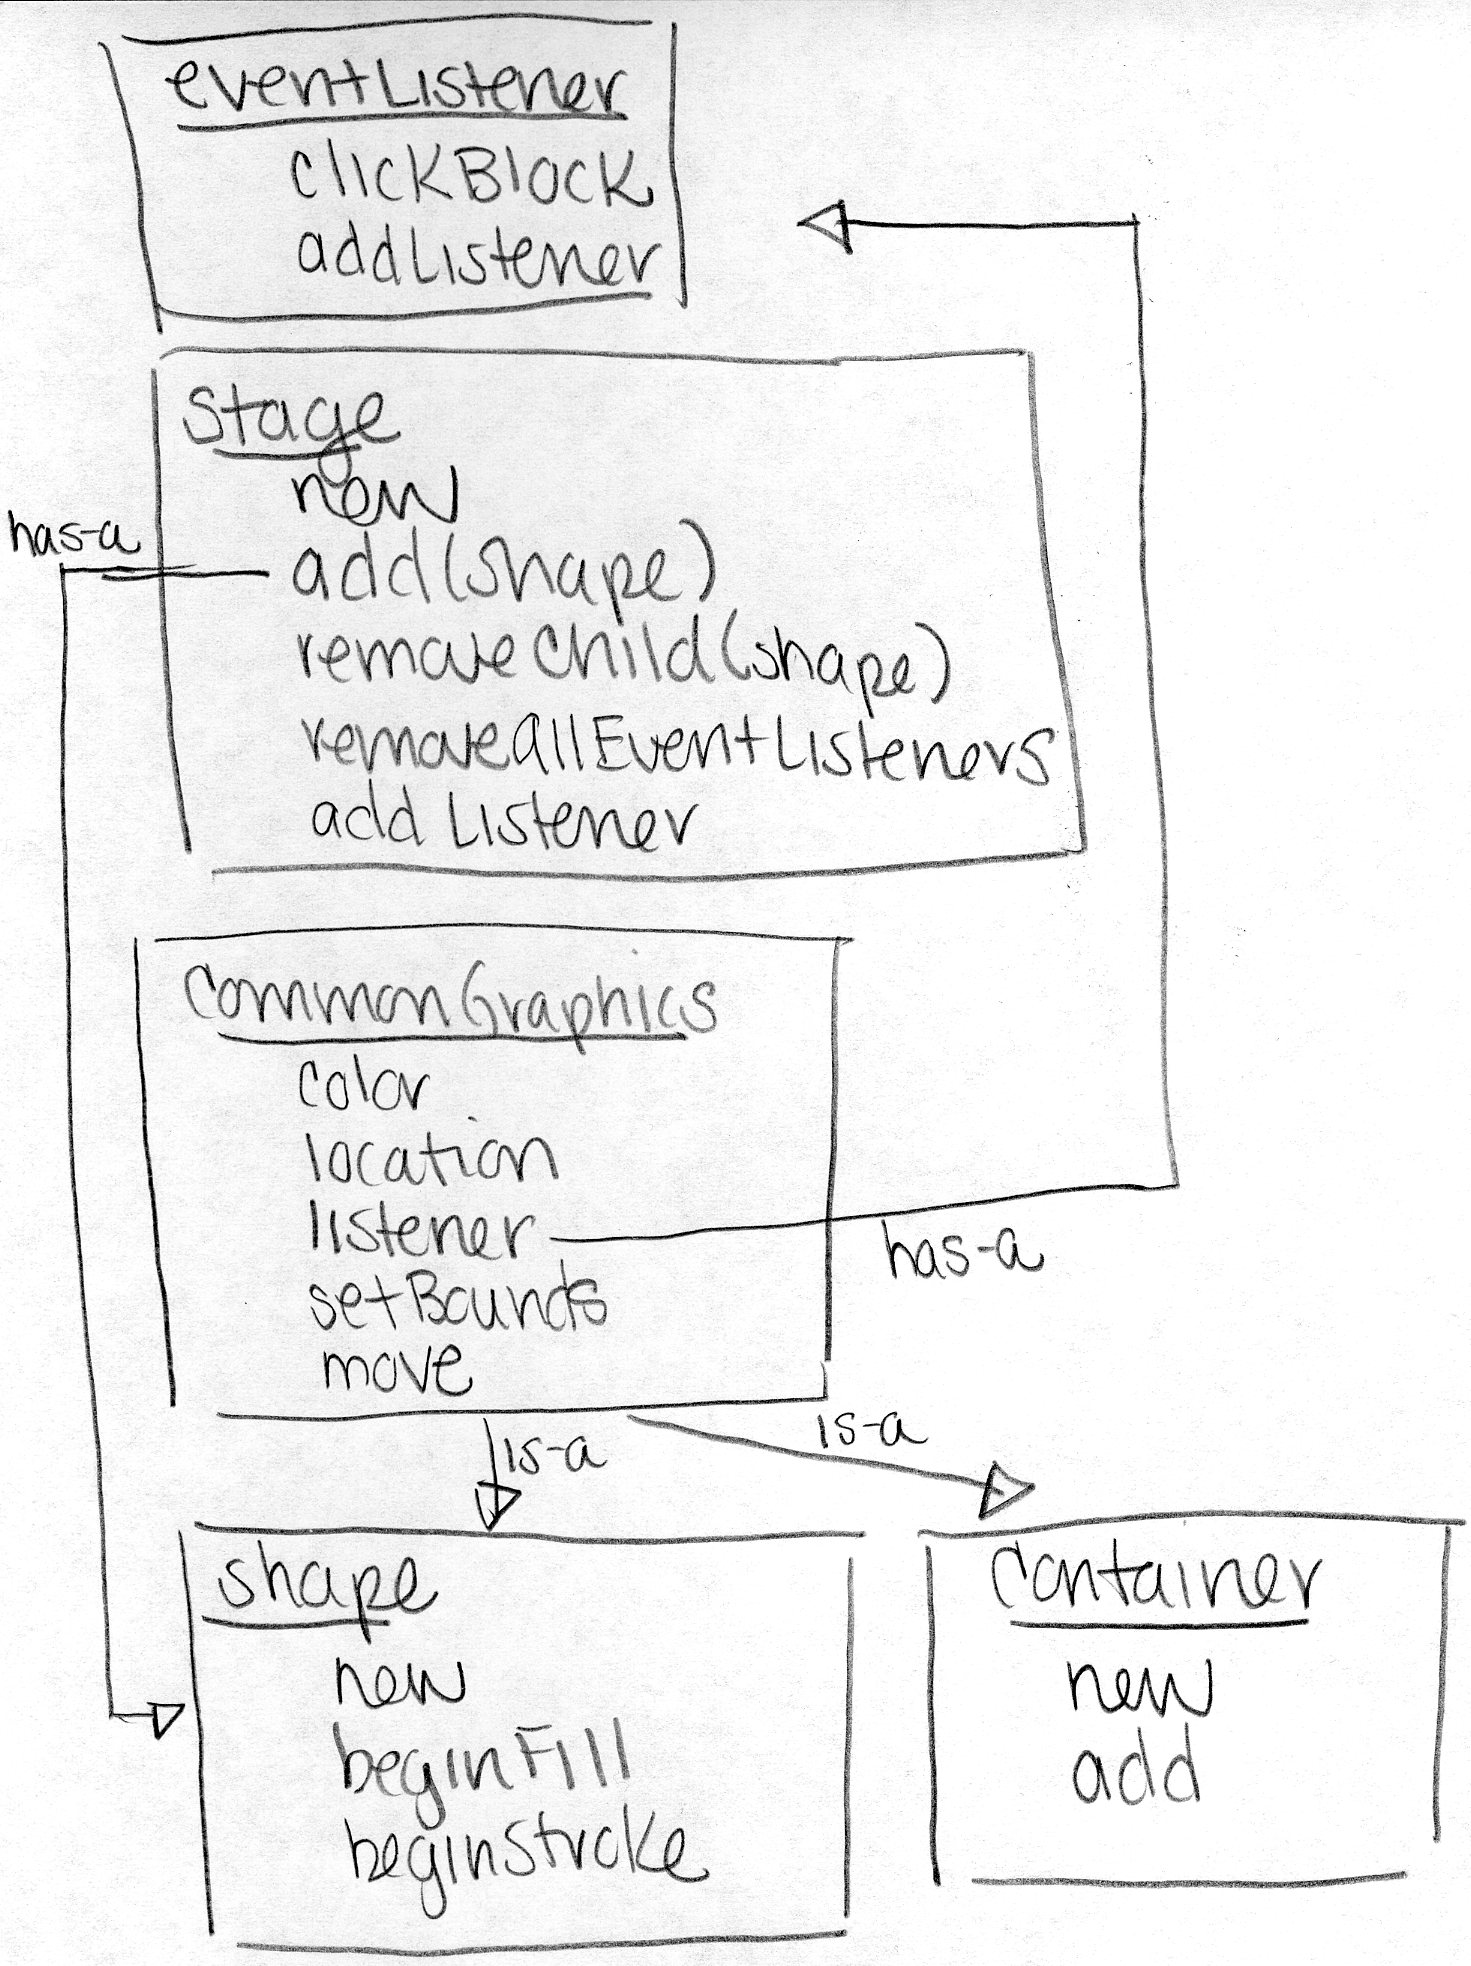 eventListener
clickBlock
addListener
stage
new
has-a
add(shape)
removeChild(shape)
removeallEventListeners
add Listener
commonGraphics
color
location
listener
has-a
setBounds
move
is-a
is-a
shape
new
beginFill
beginStroke
container
new
add